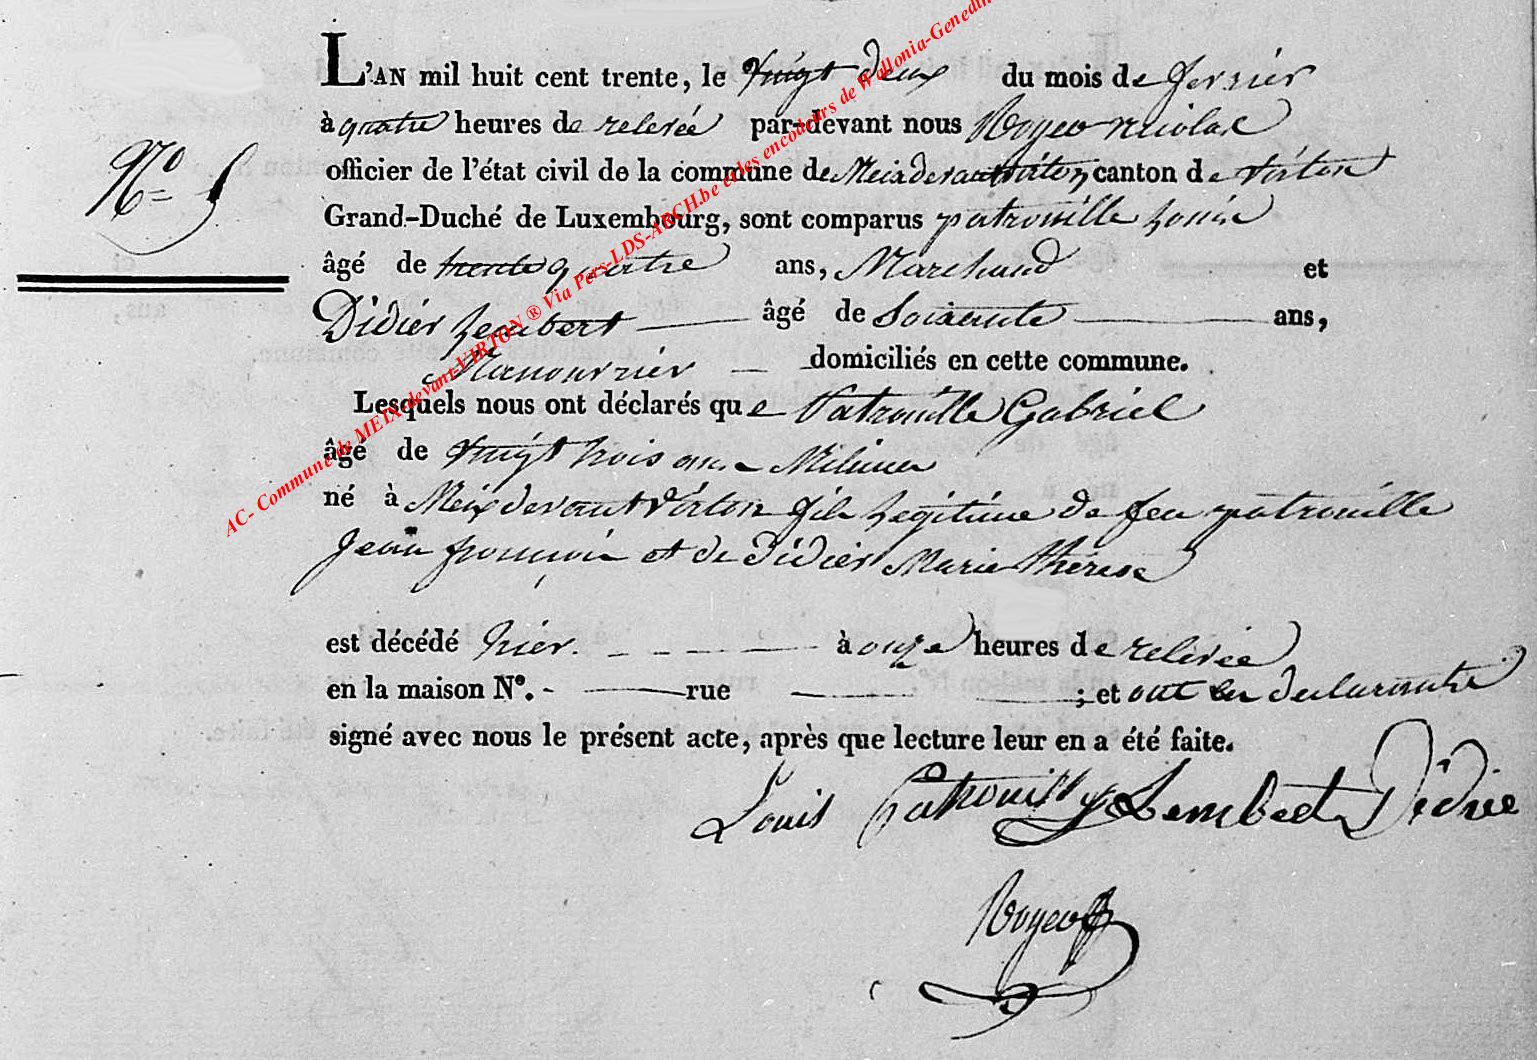 L'AN mil huit cent trente, le vingt deux du mois de fevrier
à quatre heures de relevée par-devant nous Royer nicolas
N° 5
officier de l'état civil de la commune de Meix devant virton canton de virton
Grand-Duché de Luxembourg, sont comparus patrouille Louis
âgé de trente quatre ans, Marchand et
Didier Lambert âgé de Soixante ans,
Manouvrier domiciliés en cette commune.
Lesquels nous ont déclarés que Patrouille Gabriel
âgé de vingt trois ans Militaire
né à Meix devant Virton fils Légitime de feu patrouille
Jean françois et de Didier Marie therese
est décédé hier à onze heures de relevée
en la maison N°. rue ; et ont les declarants
signé avec nous le présent acte, après que lecture leur en a été faite.
Louis Patrouille Lembert Didier
Royer
AC- Commune de MEIX-devant-VIRTON ® Via Pers-LDS-ARCH.be et les encodeurs de Wallonia-Genedin